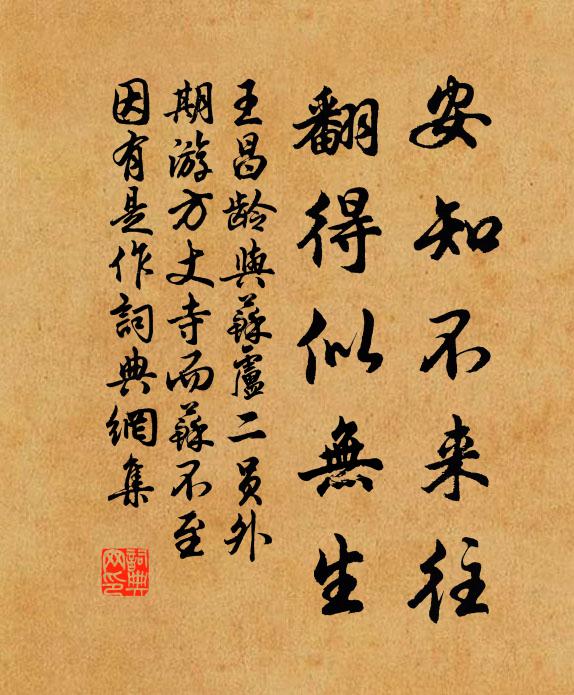 安知不来往
翻得似無生
王昌龄與蘇盧二員外
期游方丈寺而蘇不至
因有是作詞典網集
詞典
网印